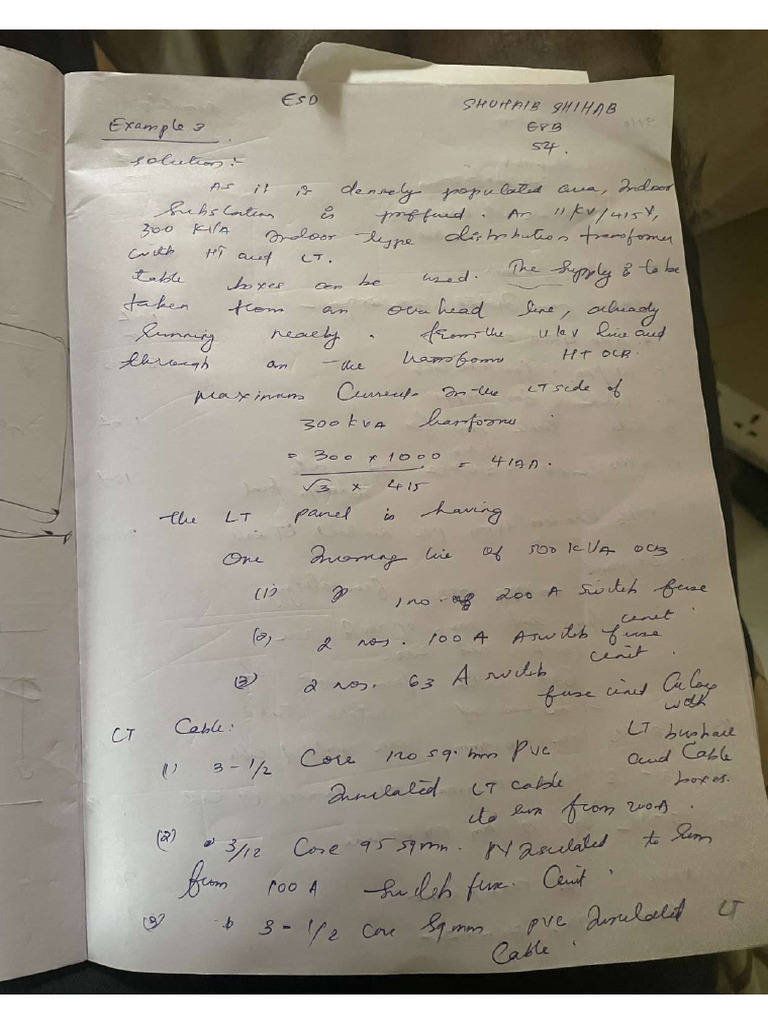 ESD
SHUHAIB SHIHAB
Example 3
E8B
54.
Solution:-
As it is densely populated area, Indoor
Substation is preffered. An 11kV/415V,
300 KVA Indoor type distribution transformer
with HT and LT.
table boxes can be used. The Supply is to be
taken from an overhead line, already
running nearby. from the 11kV line and
through an the transformer HT OCB.
Maximum Current in the LT side of
300kVA transformer
= 300 x 1000 = 417A.
√3 x 415
the LT panel is having
One Incoming line of 500kVA OCB
(1) 1 no. of 200 A switch fuse
unit.
(2) 2 nos. 100 A switch fuse
unit.
(3) 2 nos. 63 A switch
fuse unit along
with
LT busbar
and Cable
boxes.
LT Cable:
(1) 3-1/2 Core 120 sq. mm PVC
Insulated LT cable
to run from 200A.
(2) 3/12 Core 95 sqmm. Insulated to run
from 100 A Switch fuse. Unit.
(3) 3-1/2 core sqmm PVC Insulated LT
Cable.